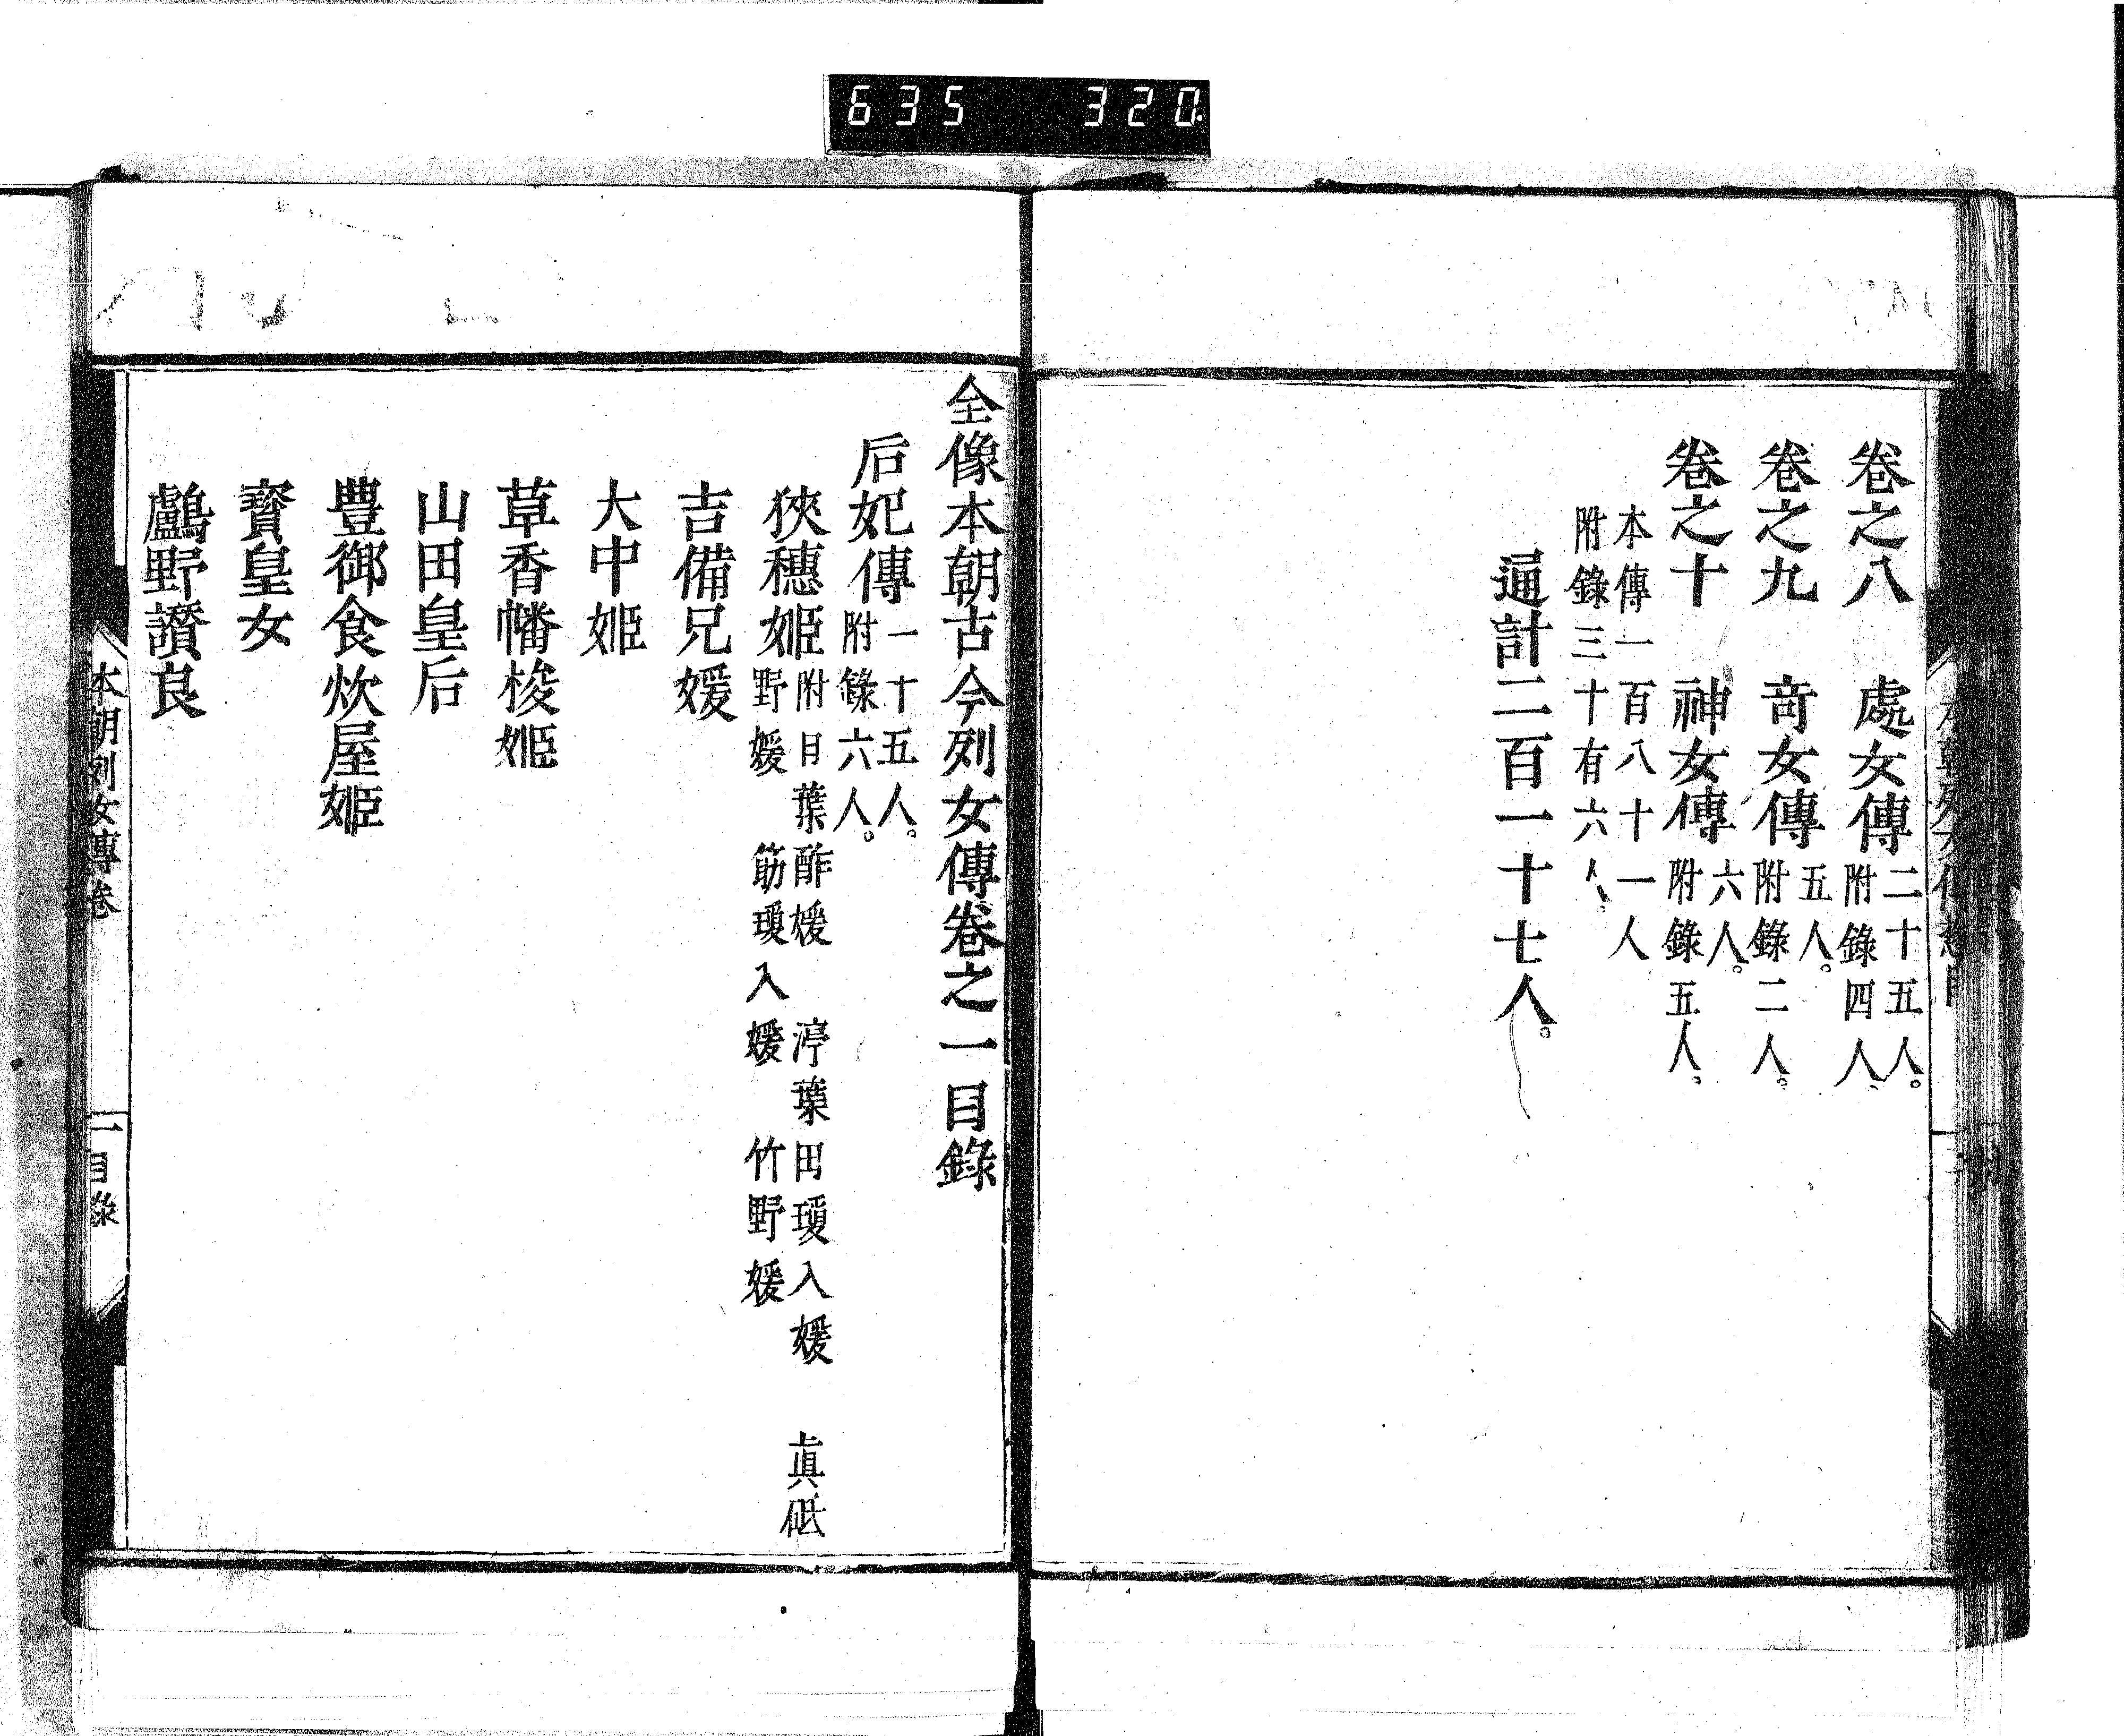 635 320
卷之八 處女傳 二十五人。附錄四人、
卷之九 奇女傳 五人。附錄二人。
卷之十 神女傳 六人。附錄五人、
本傳一百八十一人
附錄三十有六人、
通計二百一十七人。
全像本朝古今列女傳卷之一目錄
后妃傳 一十五人。附錄六人。
狹穗姬 附日葉酢媛 渟葉田瓊入媛 真砥野媛 筋瓊入媛 竹野媛
吉備兄媛
大中姬
草香幡梭姬
山田皇后
豊御食炊屋姬
寳皇女
鸕野讃良
本朝列女傳卷 一目錄